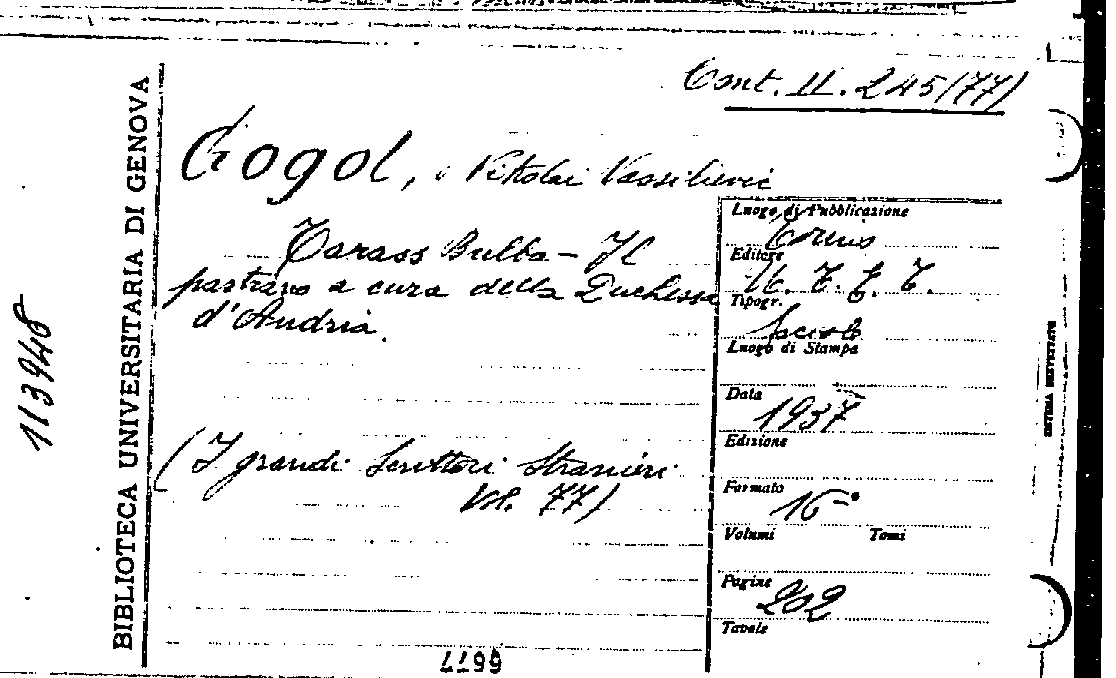 Cont. II. 245/77)
Gogol, Nikolai Vassilievic
Tarass Bulba - Il
pastrano a cura della Duchessa
d'Andria.
(I grandi Scrittori Stranieri
Vol. 77)
Luogo di Pubblicazione
Torino
Editore
U. T. E. T.
Tipogr.
Sociale
Luogo di Stampa
Data
1937
Edizione
Formato
16-°
Volumi Tomi
Pagine
202
Tavole
BIBLIOTECA UNIVERSITARIA DI GENOVA
113948